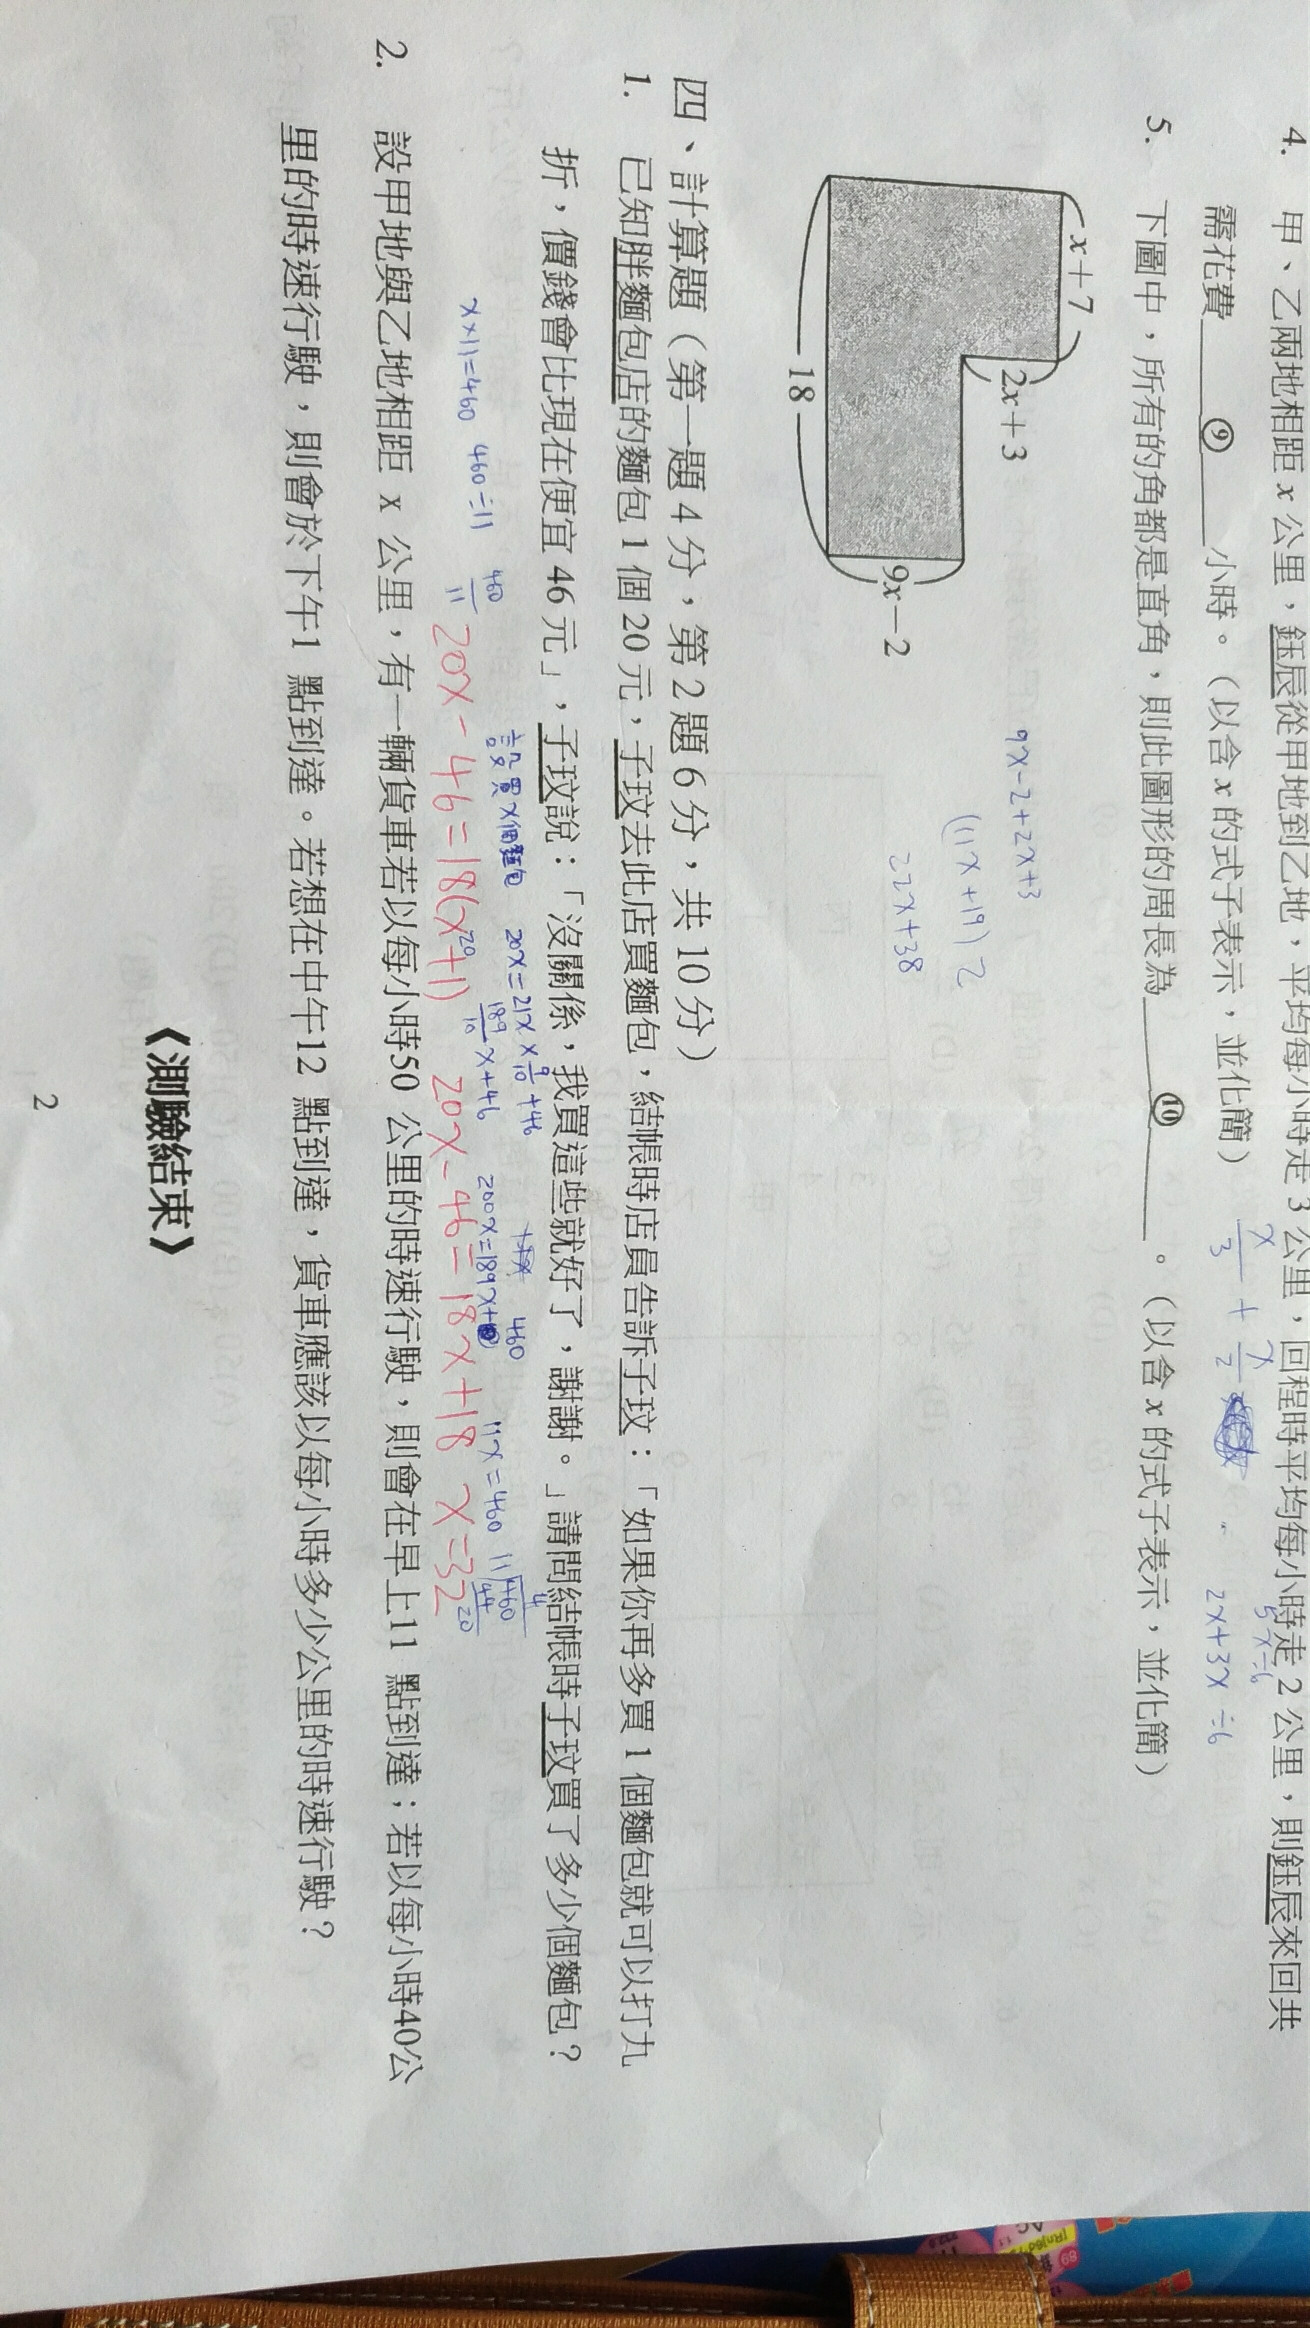 4. 甲、乙兩地相距 x 公里，鈺辰從甲地到乙地，平均每小時走 3 公里，回程時平均每小時走 2 公里，則鈺辰來回共
需花費 ⑨ 小時。（以含 x 的式子表示，並化簡）
x/3 + x/2
2x+3x=6
5x=6
5. 下圖中，所有的角都是直角，則此圖形的周長為 ⑩ 。（以含 x 的式子表示，並化簡）
x+7
2x+3
9x-2
18
9x-2+2x+3
(11x+19)2
22x+38
四、計算題（第一題 4 分，第 2 題 6 分，共 10 分）
1. 已知胖麵包店的麵包 1 個 20 元，子玟去此店買麵包，結帳時店員告訴子玟：「如果你再多買 1 個麵包就可以打九
折，價錢會比現在便宜 46 元」，子玟說：「沒關係，我買這些就好了，謝謝。」請問結帳時子玟買了多少個麵包？
設買x個麵包 20x=21x×9/10+46
460
x×11=460 460÷11 460/11
20 189/10x+46 200x=189x+ 11x=460
4
11 460
44
20
20x-46=18(x+1) 20x-46=18x+18 x=32
2. 設甲地與乙地相距 x 公里，有一輛貨車若以每小時50 公里的時速行駛，則會在早上11 點到達；若以每小時40公
里的時速行駛，則會於下午1 點到達。若想在中午12 點到達，貨車應該以每小時多少公里的時速行駛？
《測驗結束》
2